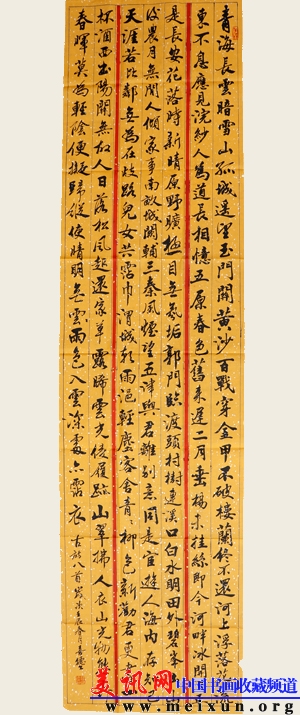 青海長雲暗雪山孤城遙望玉門關黃沙百戰穿金甲不破樓蘭終不還河上浮落
東不息應見浣紗人為道長相憶五原春色舊來遲二月垂楊未挂絲即今河畔冰開
是長安花落時新晴原野曠極目無氛垢郭門臨渡頭村樹連溪口白水明田外碧峯
後農月無閑人傾家事南畝城闕輔三秦風煙望五津與君離別意同是宦遊人海內存知
天涯若比鄰無為在歧路兒女共霑巾渭城朝雨浥輕塵客舍青青柳色新勸君更盡
杯酒西出陽關無故人日落松風起還家草露晞雲光侵履跡山翠拂人衣山光物態
春暉莫為輕陰便擬歸縱使晴明無雲雨色入雲深處亦霑衣 古詩八首歲次壬辰
美讯网
中国书画收藏频道
www.meixun.org